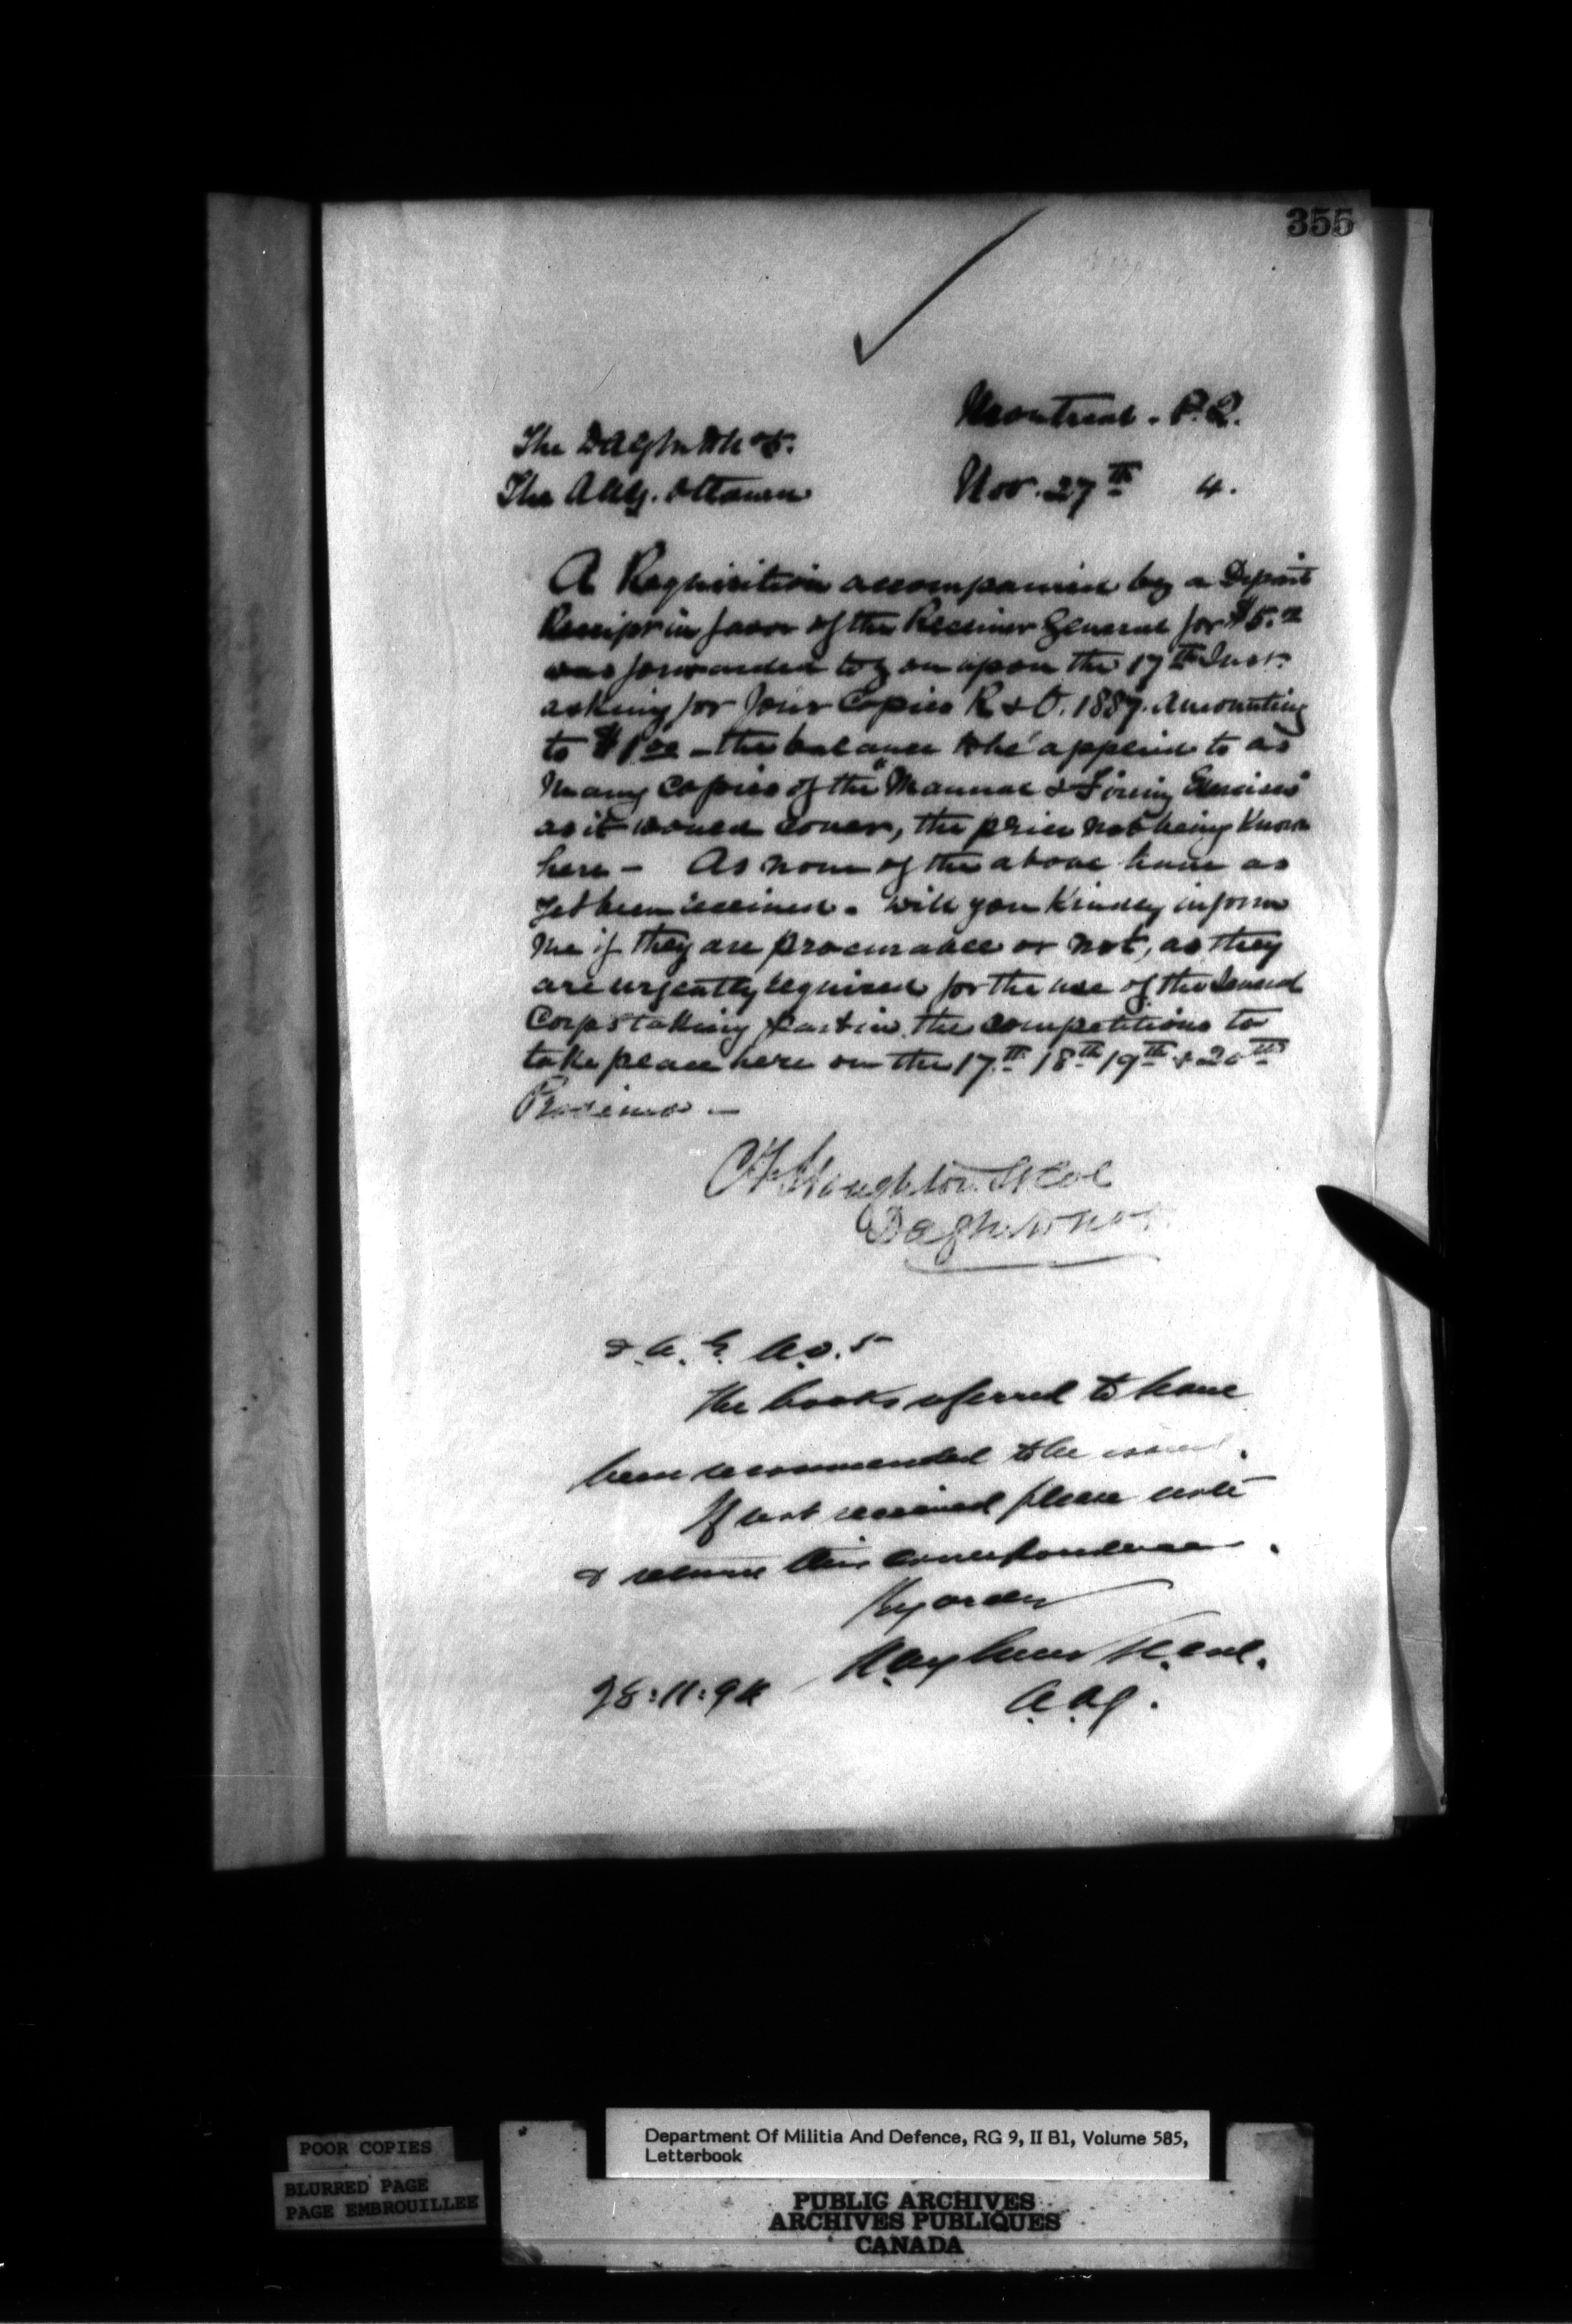 355
Montreal. P.Q.
The DAG
The AAG. Ottawa
Nov. 27th 4.
A Requisition accompanied by a Deposit
Receipt in favor of the Receiver General for $5.
was forwarded to you upon the 17th Inst.
asking for four Copies R & O. 1887. Amounting
to $1.00 - the balance to be applied to as
many copies of the "Manual & Firing Exercises"
as it would cover, the price not being known
here - As none of the above have as
yet been received. Will you kindly inform
me if they are procurable or not, as they
are urgently required for the use of the several
Corps taking part in the competitions to
take place here on the 17th 18th 19th & 20th
Proximo -
C F Houghton Lt Col
DAG
D.A.G. No. 5
The books referred to have
been recommended to be issued.
If not received please note
& return this correspondence.
By order
Lt. Col.
28:11:94
A.A.G.
POOR COPIES
BLURRED PAGE
PAGE EMBROUILLEE
Department Of Militia And Defence, RG 9, II B1, Volume 585,
Letterbook
PUBLIC ARCHIVES
ARCHIVES PUBLIQUES
CANADA